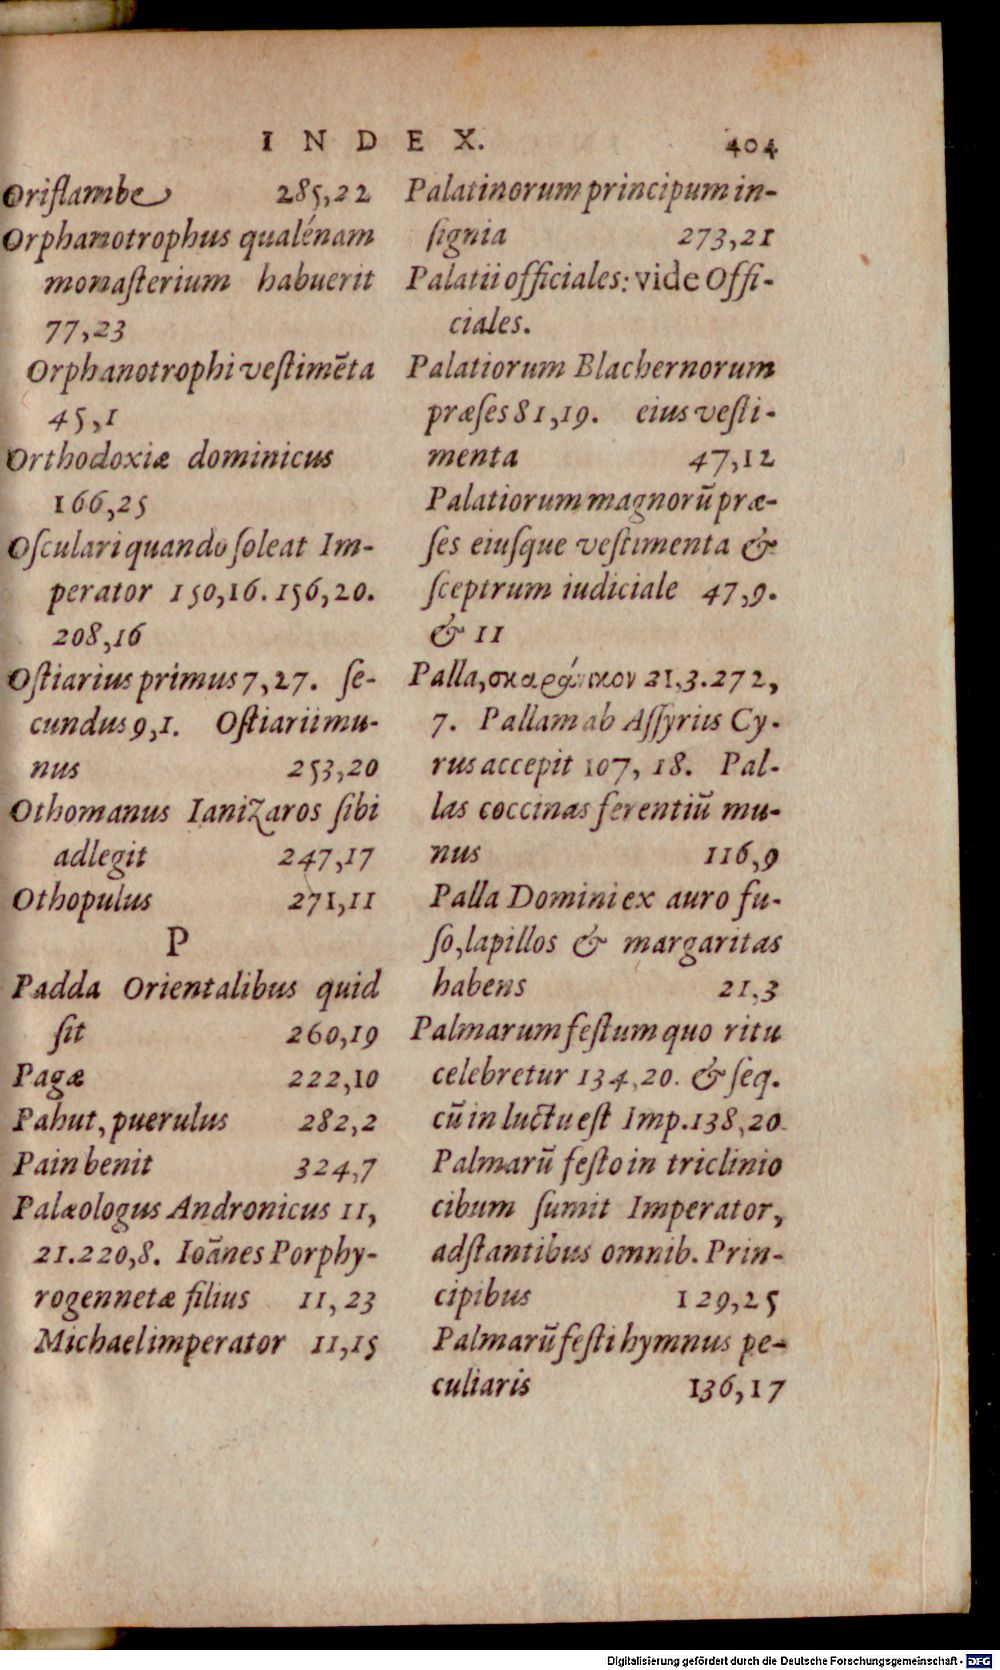 INDEX. 404
Oriflambe 285,22
Orphanotrophus qualénam
monaſterium habuerit
77,23
Orphanotrophi veſtimēta
45,1
Orthodoxiæ dominicus
166,25
Oſculari quando ſoleat Im-
perator 150,16. 156,20.
208,16
Oſtiarius primus 7,27. ſe-
cundus 9,1. Oſtiarii mu-
nus 253,20
Othomanus Ianizaros ſibi
adlegit 247,17
Othopulus 271,11
P
Padda Orientalibus quid
ſit 260,19
Pagæ 222,10
Pahut, puerulus 282,2
Pain benit 324,7
Palæologus Andronicus 11,
21.220,8. Ioānes Porphy-
rogennetæ filius 11,23
Michael imperator 11,15
Palatinorum principum in-
ſignia 273,21
Palatii officiales: vide Offi-
ciales.
Palatiorum Blachernorum
præſes 81,19. eius veſti-
menta 47,12
Palatiorum magnorū præ-
ſes eiuſque veſtimenta &
ſceptrum iudiciale 47,9.
& 11
Palla, 21,3.272,
7. Pallam ab Aſſyriis Cy-
rus accepit 107, 18. Pal-
las coccinas ferentiū mu-
nus 116,9
Palla Domini ex auro fu-
ſo, lapillos & margaritas
habens 21,3
Palmarum feſtum quo ritu
celebretur 134,20. & ſeq.
cū in luctu eſt Imp. 138,20.
Palmarū feſto in triclinio
cibum ſumit Imperator,
adſtantibus omnib. Prin-
cipibus 129,25
Palmarū feſti hymnus pe-
culiaris 136,17
Digitalisierung gefördert durch die Deutsche Forschungsgemeinschaft - DFG